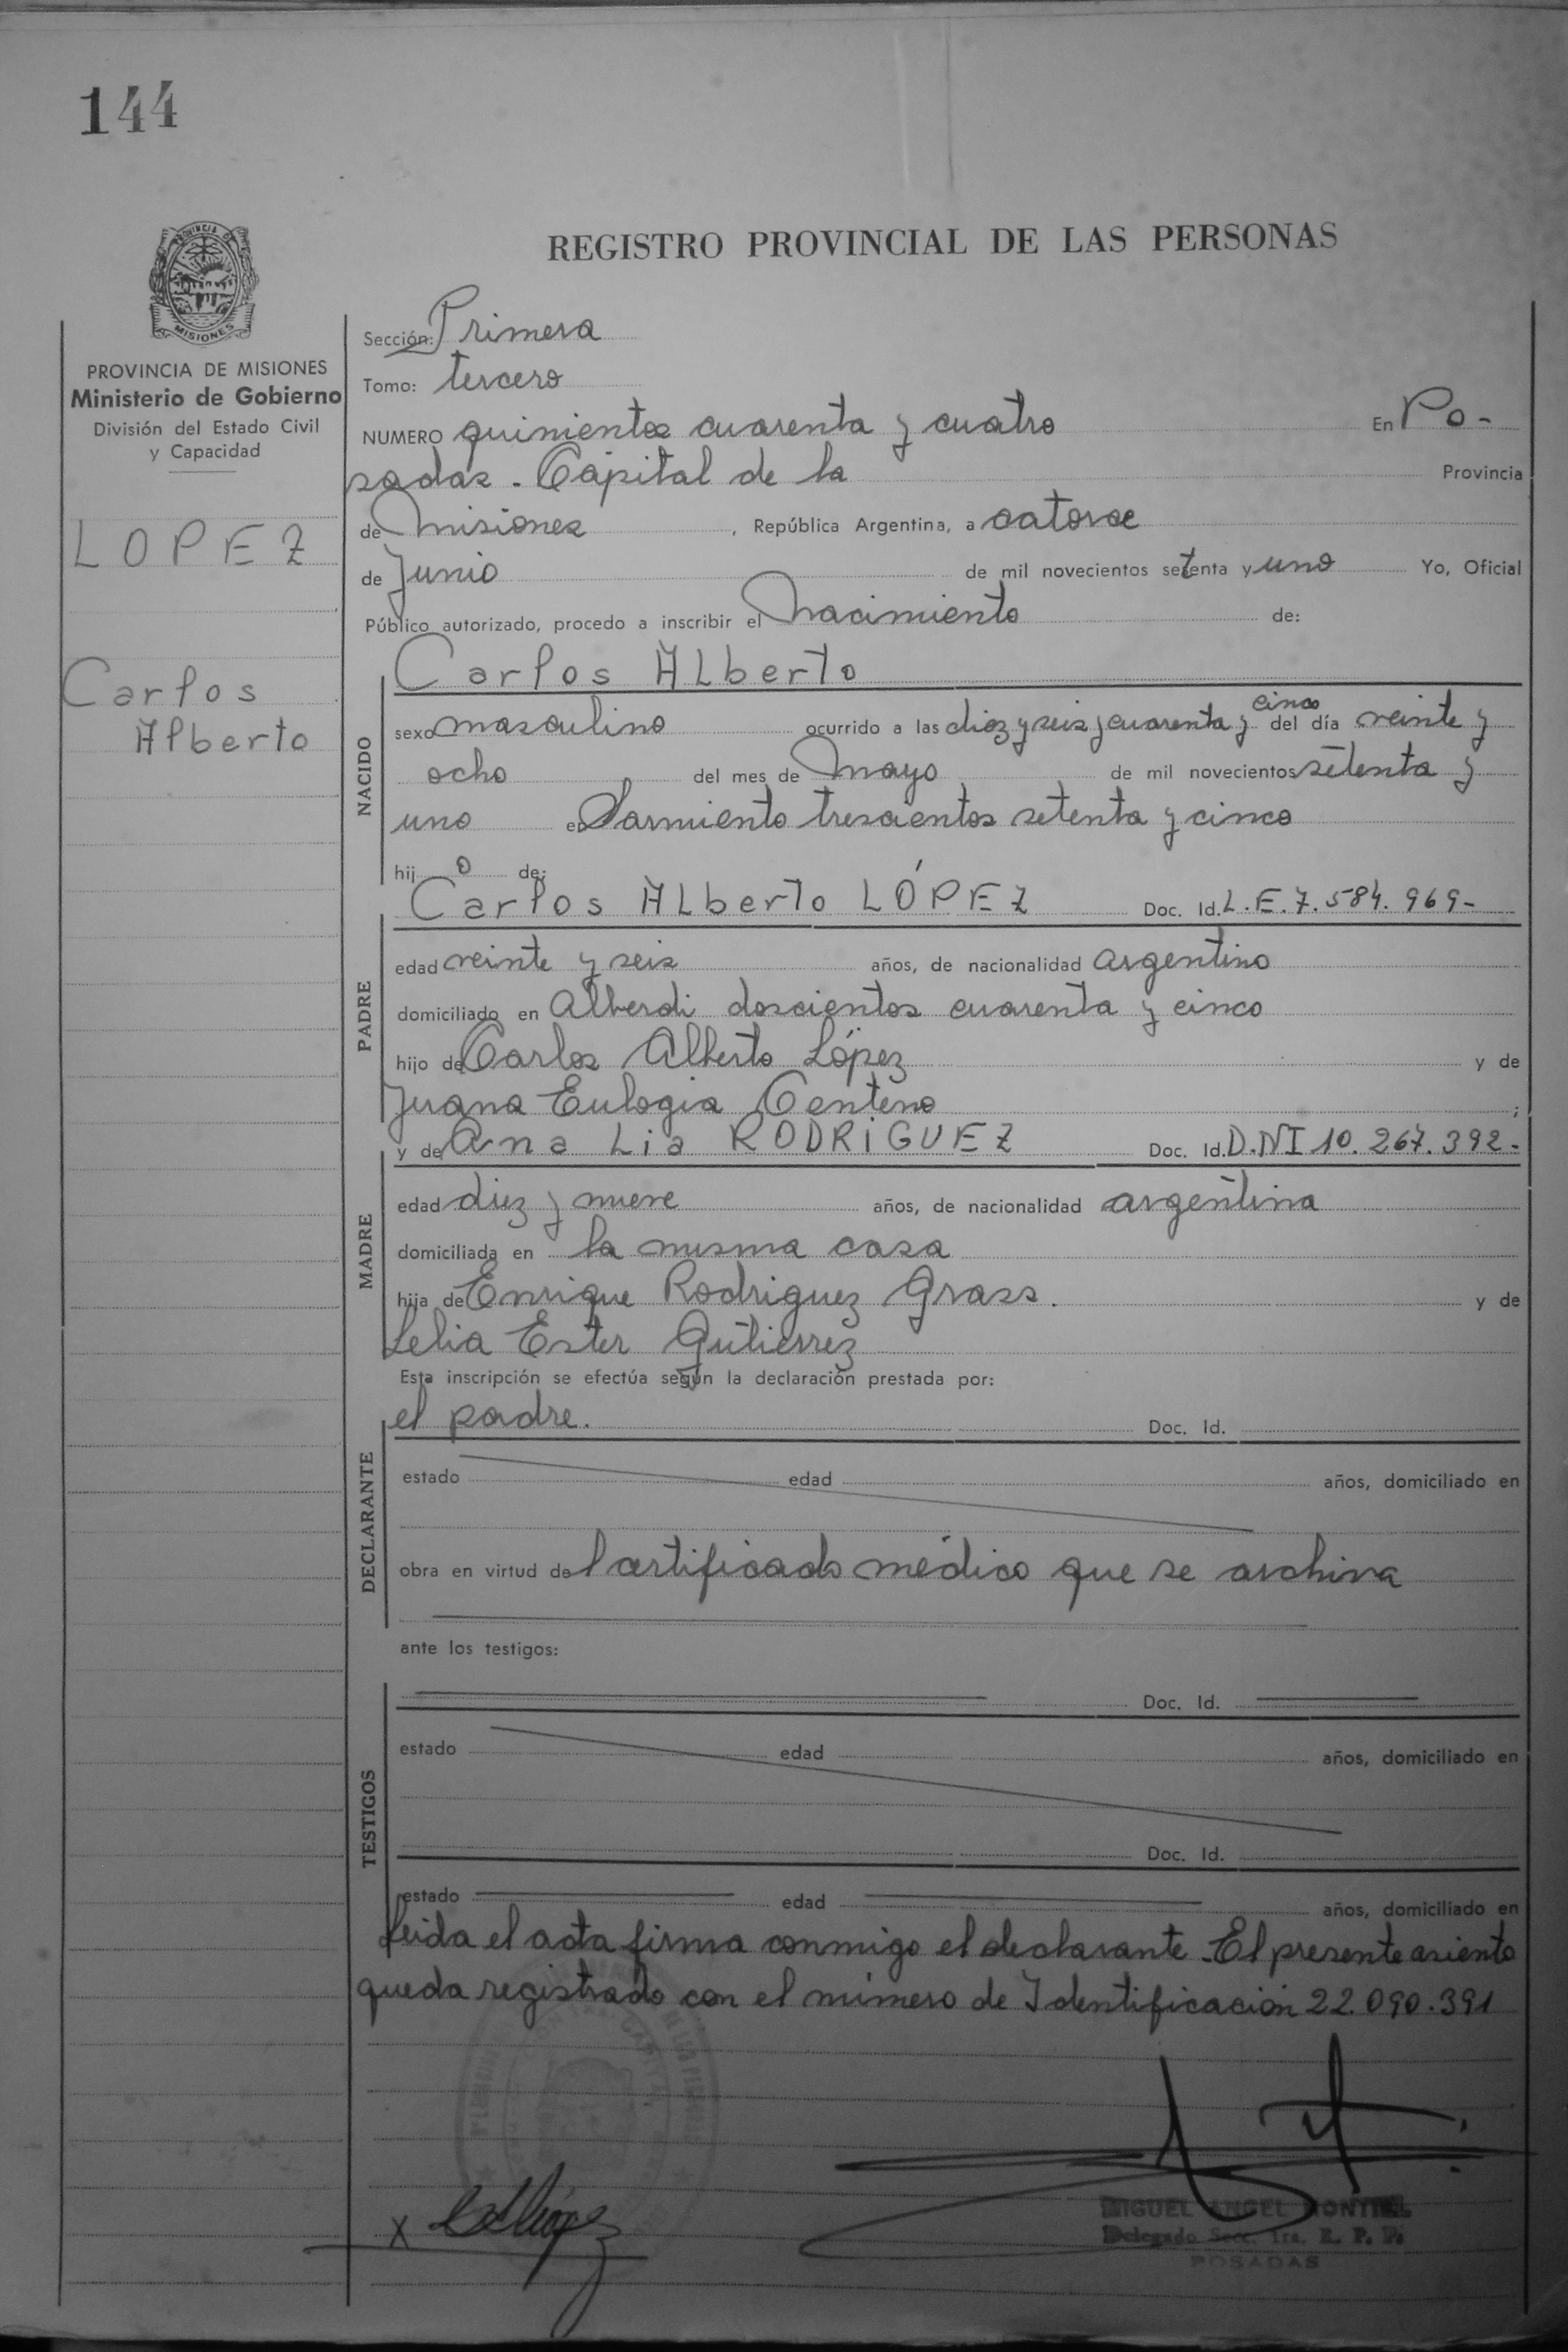 144
PROVINCIA DE
MISIONES
REGISTRO PROVINCIAL DE LAS PERSONAS
PROVINCIA DE MISIONES
Ministerio de Gobierno
División del Estado Civil
y Capacidad
LOPEZ
Carlos
Alberto
Sección: Primera
Tomo: tercero
NUMERO quinientos cuarenta y cuatro En Po-
sadas - Capital de la Provincia
de Misiones, República Argentina, a catorce
de Junio de mil novecientos setenta y uno Yo, Oficial
Público autorizado, procedo a inscribir el Nacimiento de:
Carlos ALberto
NACIDO
sexo masculino ocurrido a las diez y seis y cuarenta y cinco del día veinte y
ocho del mes de Mayo de mil novecientos setenta y
uno en Sarmiento trescientos setenta y cinco
hij o de:
Carlos ALberto LÓPEZ Doc. Id. L.E.7.584.969-
PADRE
edad veinte y seis años, de nacionalidad argentino
domiciliado en Alberdi doscientos cuarenta y cinco
hijo de Carlos Alberto López y de
Juana Eulogia Centeno ;
y de Ana Lia RODRiGUEZ Doc. Id. D.NI 10.267.392-
MADRE
edad diez y nueve años, de nacionalidad argentina
domiciliada en la misma casa
hija de Enrique Rodriguez Grass. y de
Lelia Ester Gutierrez
Esta inscripción se efectúa según la declaración prestada por:
el padre. Doc. Id.
DECLARANTE
estado edad años, domiciliado en
obra en virtud del certificado médico que se archiva
ante los testigos:
Doc. Id.
TESTIGOS
estado edad años, domiciliado en
Doc. Id.
estado edad años, domiciliado en
Leida el acta firma conmigo el declarante. El presente asiento
queda registrado con el número de Identificación 22.090.391
X
MIGUEL ANGEL MONTIEL
Delegado Secc. 1ra. R. P. P.
POSADAS